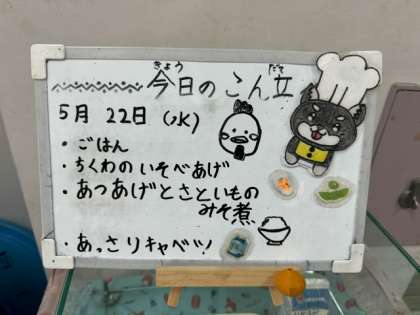 今日のこん立
きょう だて
5月 22日 (水)
・ごはん
・ちくわのいそべあげ
・あつあげとさといもの
みそ煮
・あっさりキャベツ